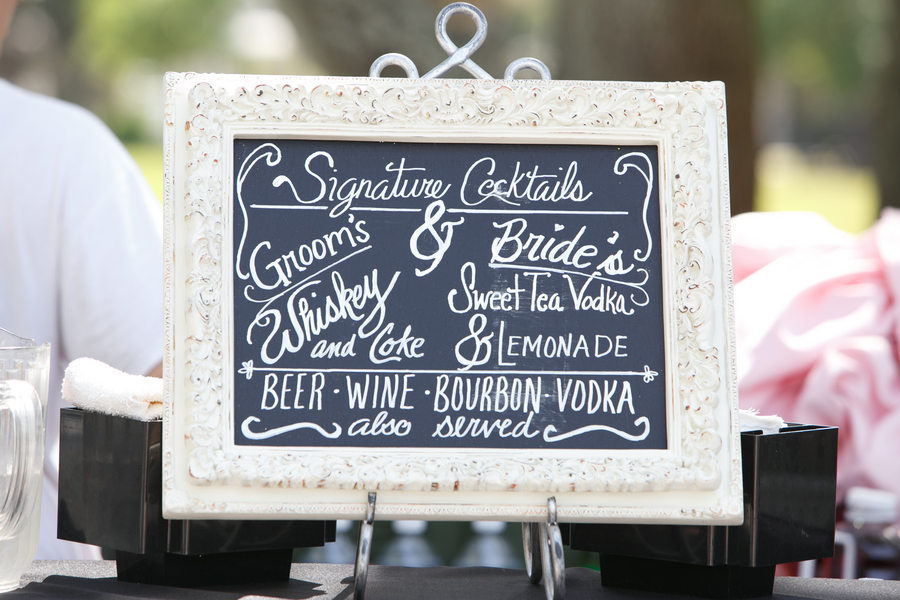 Signature Cocktails
Groom's & Bride's
Whiskey and Coke
Sweet Tea Vodka
& LEMONADE
BEER · WINE · BOURBON · VODKA
also served